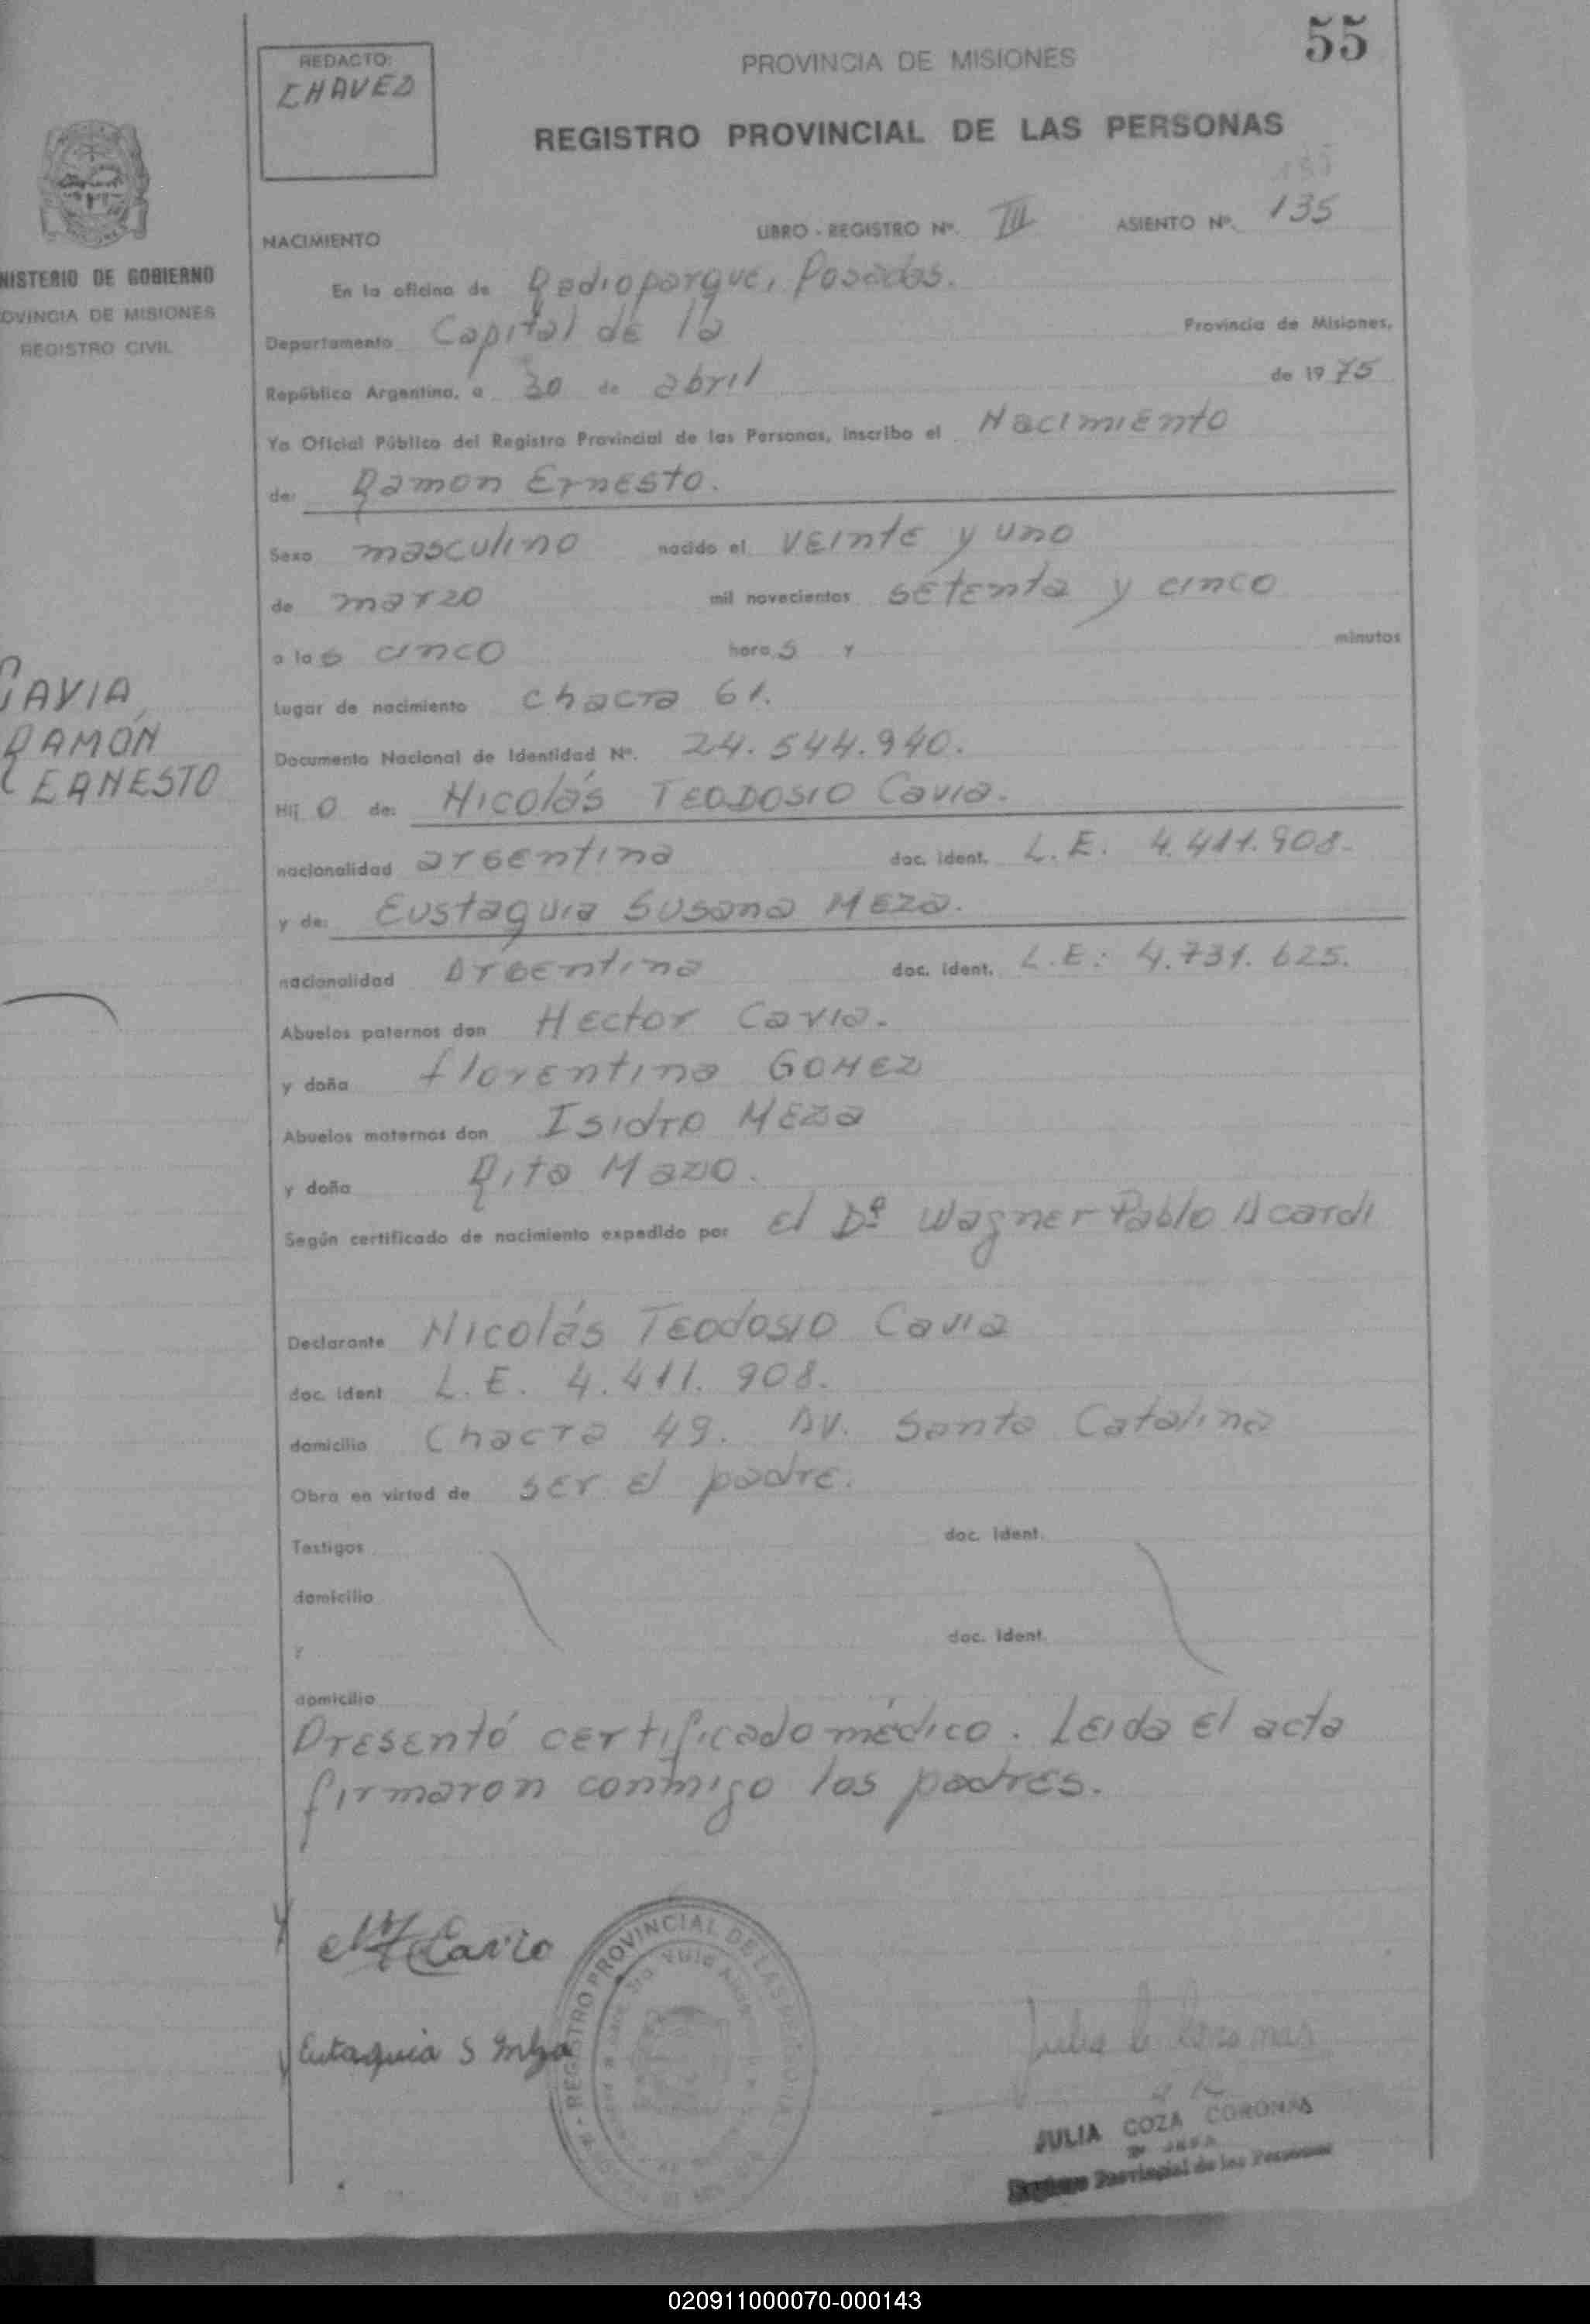 55
REDACTO:
CHAVES
PROVINCIA DE MISIONES
REGISTRO PROVINCIAL DE LAS PERSONAS
NISTERIO DE GOBIERNO
OVINCIA DE MISIONES
REGISTRO CIVIL
NACIMIENTO LIBRO - REGISTRO Nº. III ASIENTO Nº. 135
En la oficina de Radioparque, Posadas.
Departamento Capital de la Provincia de Misiones,
República Argentina, a 30 de abril de 1975
Yo Oficial Público del Registro Provincial de las Personas, inscribo el Nacimiento
de: Ramon Ernesto.
Sexo masculino nacido el veinte y uno
de marzo mil novecientos setenta y cinco
a las cinco horas y minutos
Lugar de nacimiento chacra 61.
Documento Nacional de Identidad Nº. 24.544.940.
CAVIA
RAMÓN
ERNESTO
Hij o de: Nicolás TEODOSIO Cavia.
nacionalidad argentina doc. ident. L.E. 4.411.908.
y de: Eustaquia Susana MEZA.
nacionalidad Argentina doc. ident. L.E: 4.731.625.
Abuelos paternos don Hector Cavia.
y doña florentina GOMEZ
Abuelos maternos don Isidro MEZA
y doña Rita Mazo.
Según certificado de nacimiento expedido por el Dº Wagner Pablo Acardi
Declarante Nicolás Teodosio Cavia
doc. ident L.E. 4.411.908.
domicilio Chacra 49. AV. Santa Catalina
Obra en virtud de ser el padre.
Testigos doc. ident.
domicilio
y doc. ident.
domicilio
Presentó certificado médico. Leida el acta
firmaron conmigo los padres.
Cavia
Eutaquia S Meza
REGISTRO PROVINCIAL DE LAS
JULIA COZA CORONAS
Provincial de las Personas
020911000070-000143